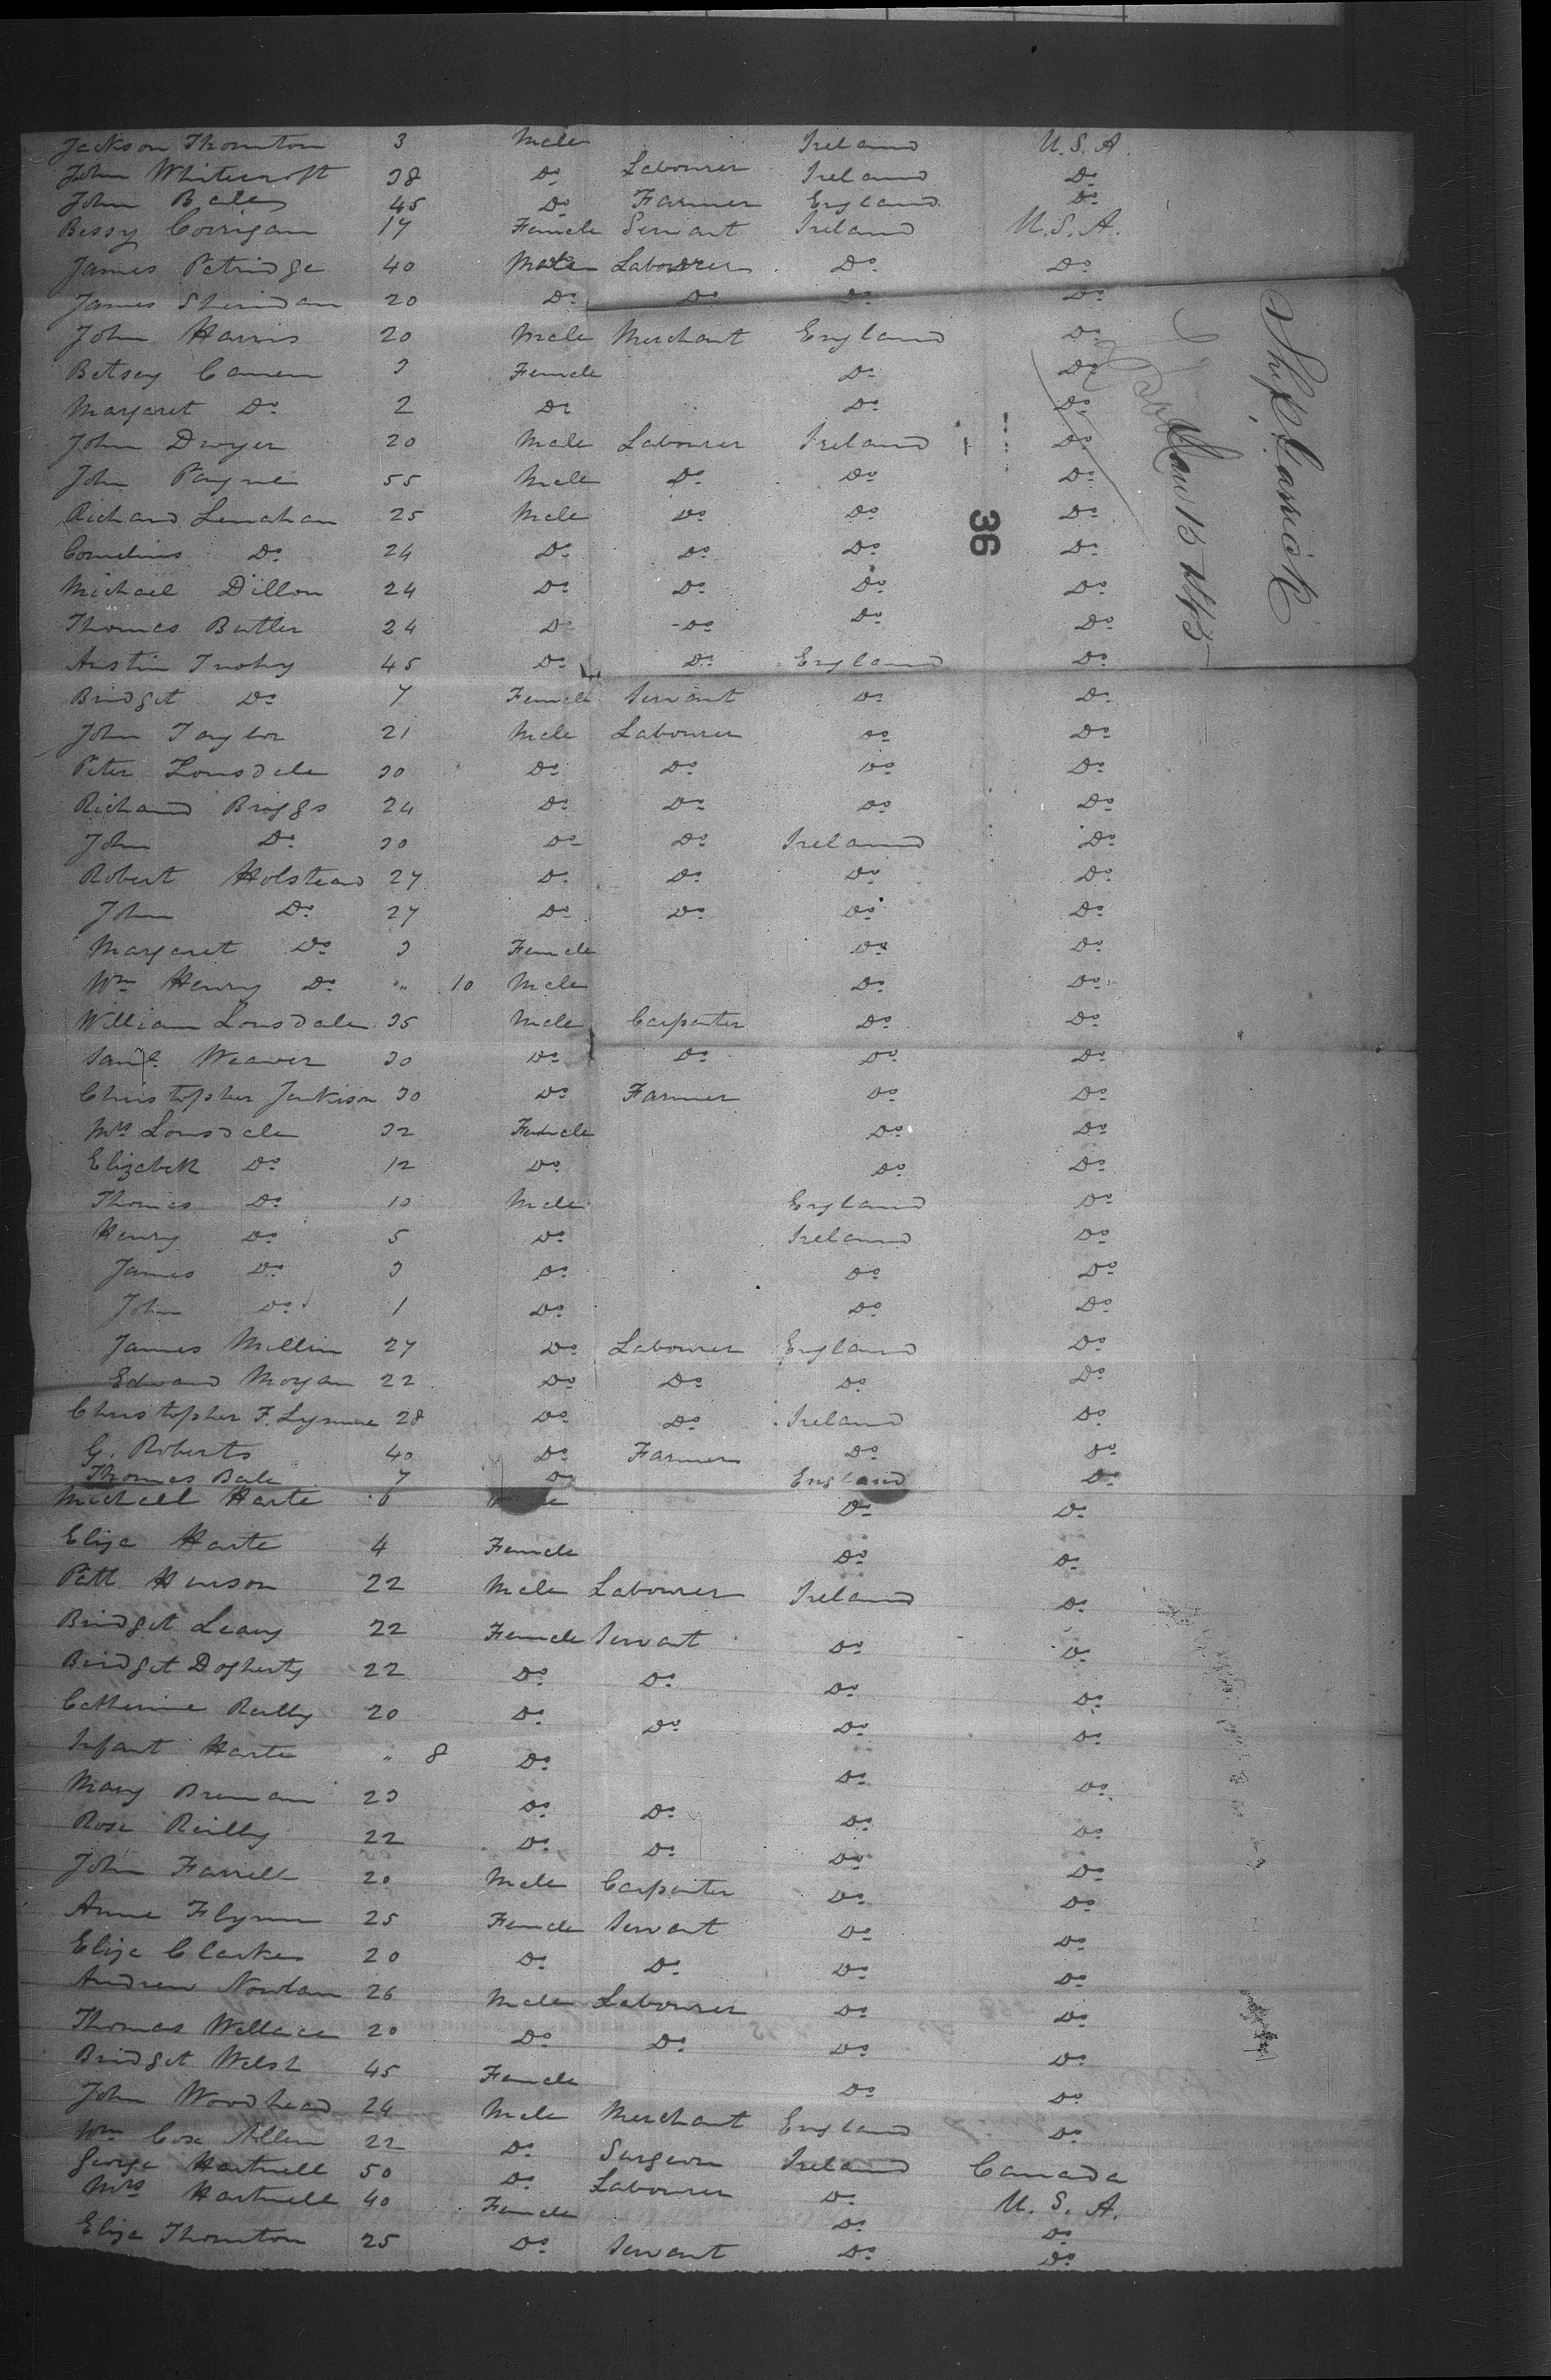 Jackson Thornton 3 Male Ireland U.S.A.
John Whitecroft 38 Do Labourer Ireland Do
John Bale 45 Do Farmer England Do
Bessy Corrigan 17 Female Servant Ireland U.S.A.
James Petridge 40 Male Labourer Do Do
James Sheridan 20 Do Do Do Do
John Harris 20 Male Merchant England Do
Betsey 3 Female Do Do
Margaret Do 2 Do Do Do
John Dwyer 20 Male Labourer Ireland Do
John Payne 55 Male Do Do Do
Richard Lenahan 25 Male Do Do Do
Cornelius Do 24 Do Do Do Do
Michael Dillon 24 Do Do Do Do
Thomas Butler 24 Do Do Do Do
Austin 45 Do Do England Do
Bridget Do 7 Female Servant Do Do
John Taylor 21 Male Labourer Do Do
Peter Lonsdale 30 Do Do Do Do
Richard Briggs 24 Do Do Do Do
John Do 30 Do Do Ireland Do
Robert Holstead 27 Do Do Do Do
John Do 27 Do Do Do Do
Margaret Do 3 Female Do Do
Wm Henry Do " 10 Male Do Do
William Lonsdale 35 Male Carpenter Do Do
Saml Weaver 30 Do Do Do Do
Christopher Jenkison 30 Do Farmer Do Do
Mrs Lonsdale 32 Female Do Do
Elizabeth Do 12 Do Do Do
Thomas Do 10 Male England Do
Henry Do 5 Do Ireland Do
James Do 3 Do Do Do
John Do 1 Do Do Do
James Mellin 27 Do Labourer England Do
Edward Morgan 22 Do Do Do Do
Christopher F. 28 Do Do Ireland Do
G. Roberts 40 Do Farmer Do Do
Thomas Bale 7 Do England Do
Michael Harte 6 Do Do
Eliza Harte 4 Female Do Do
Patt Hewson 22 Male Labourer Ireland Do
Bridget Leary 22 Female Servant Do Do
Bridget Dogherty 22 Do Do Do Do
Catherine Reilly 20 Do Do Do Do
Infant Harte " 8 Do Do Do
Mary Brennan 23 Do Do Do Do
Rose Reilly 22 Do Do Do Do
John Farrell 20 Male Carpenter Do Do
Anne Flynn 25 Female Servant Do Do
Eliza Clarke 20 Do Do Do Do
Andrew Nowlan 26 Male Labourer Do Do
Thomas Wallace 20 Do Do Do Do
Bridget Welsh 45 Female Do Do
John Woodhead 24 Male Merchant England Do
Wm Cox Allen 22 Do Surgeon Ireland Canada
George Hartnell 50 Do Labourer Do U.S.A.
Mrs Hartnell 40 Female Do Do
Eliza Thornton 25 Do Servant Do Do
36
Ship Garrick